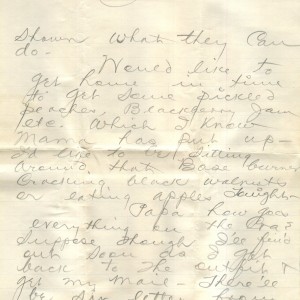 Shown what they can
do.
Would like to
get home in time
to get some pickled
peaches, Blackberry Jam
etc. which I know
Mama has put up-
I'd like to be sitting
around that Base burner
Cracking black walnuts
or eating apples tonight-
Papa how goes
everything on the
Suppose though I'll find
out soon as I get
back to the outfit &
get my mail- There'll
be six letters from